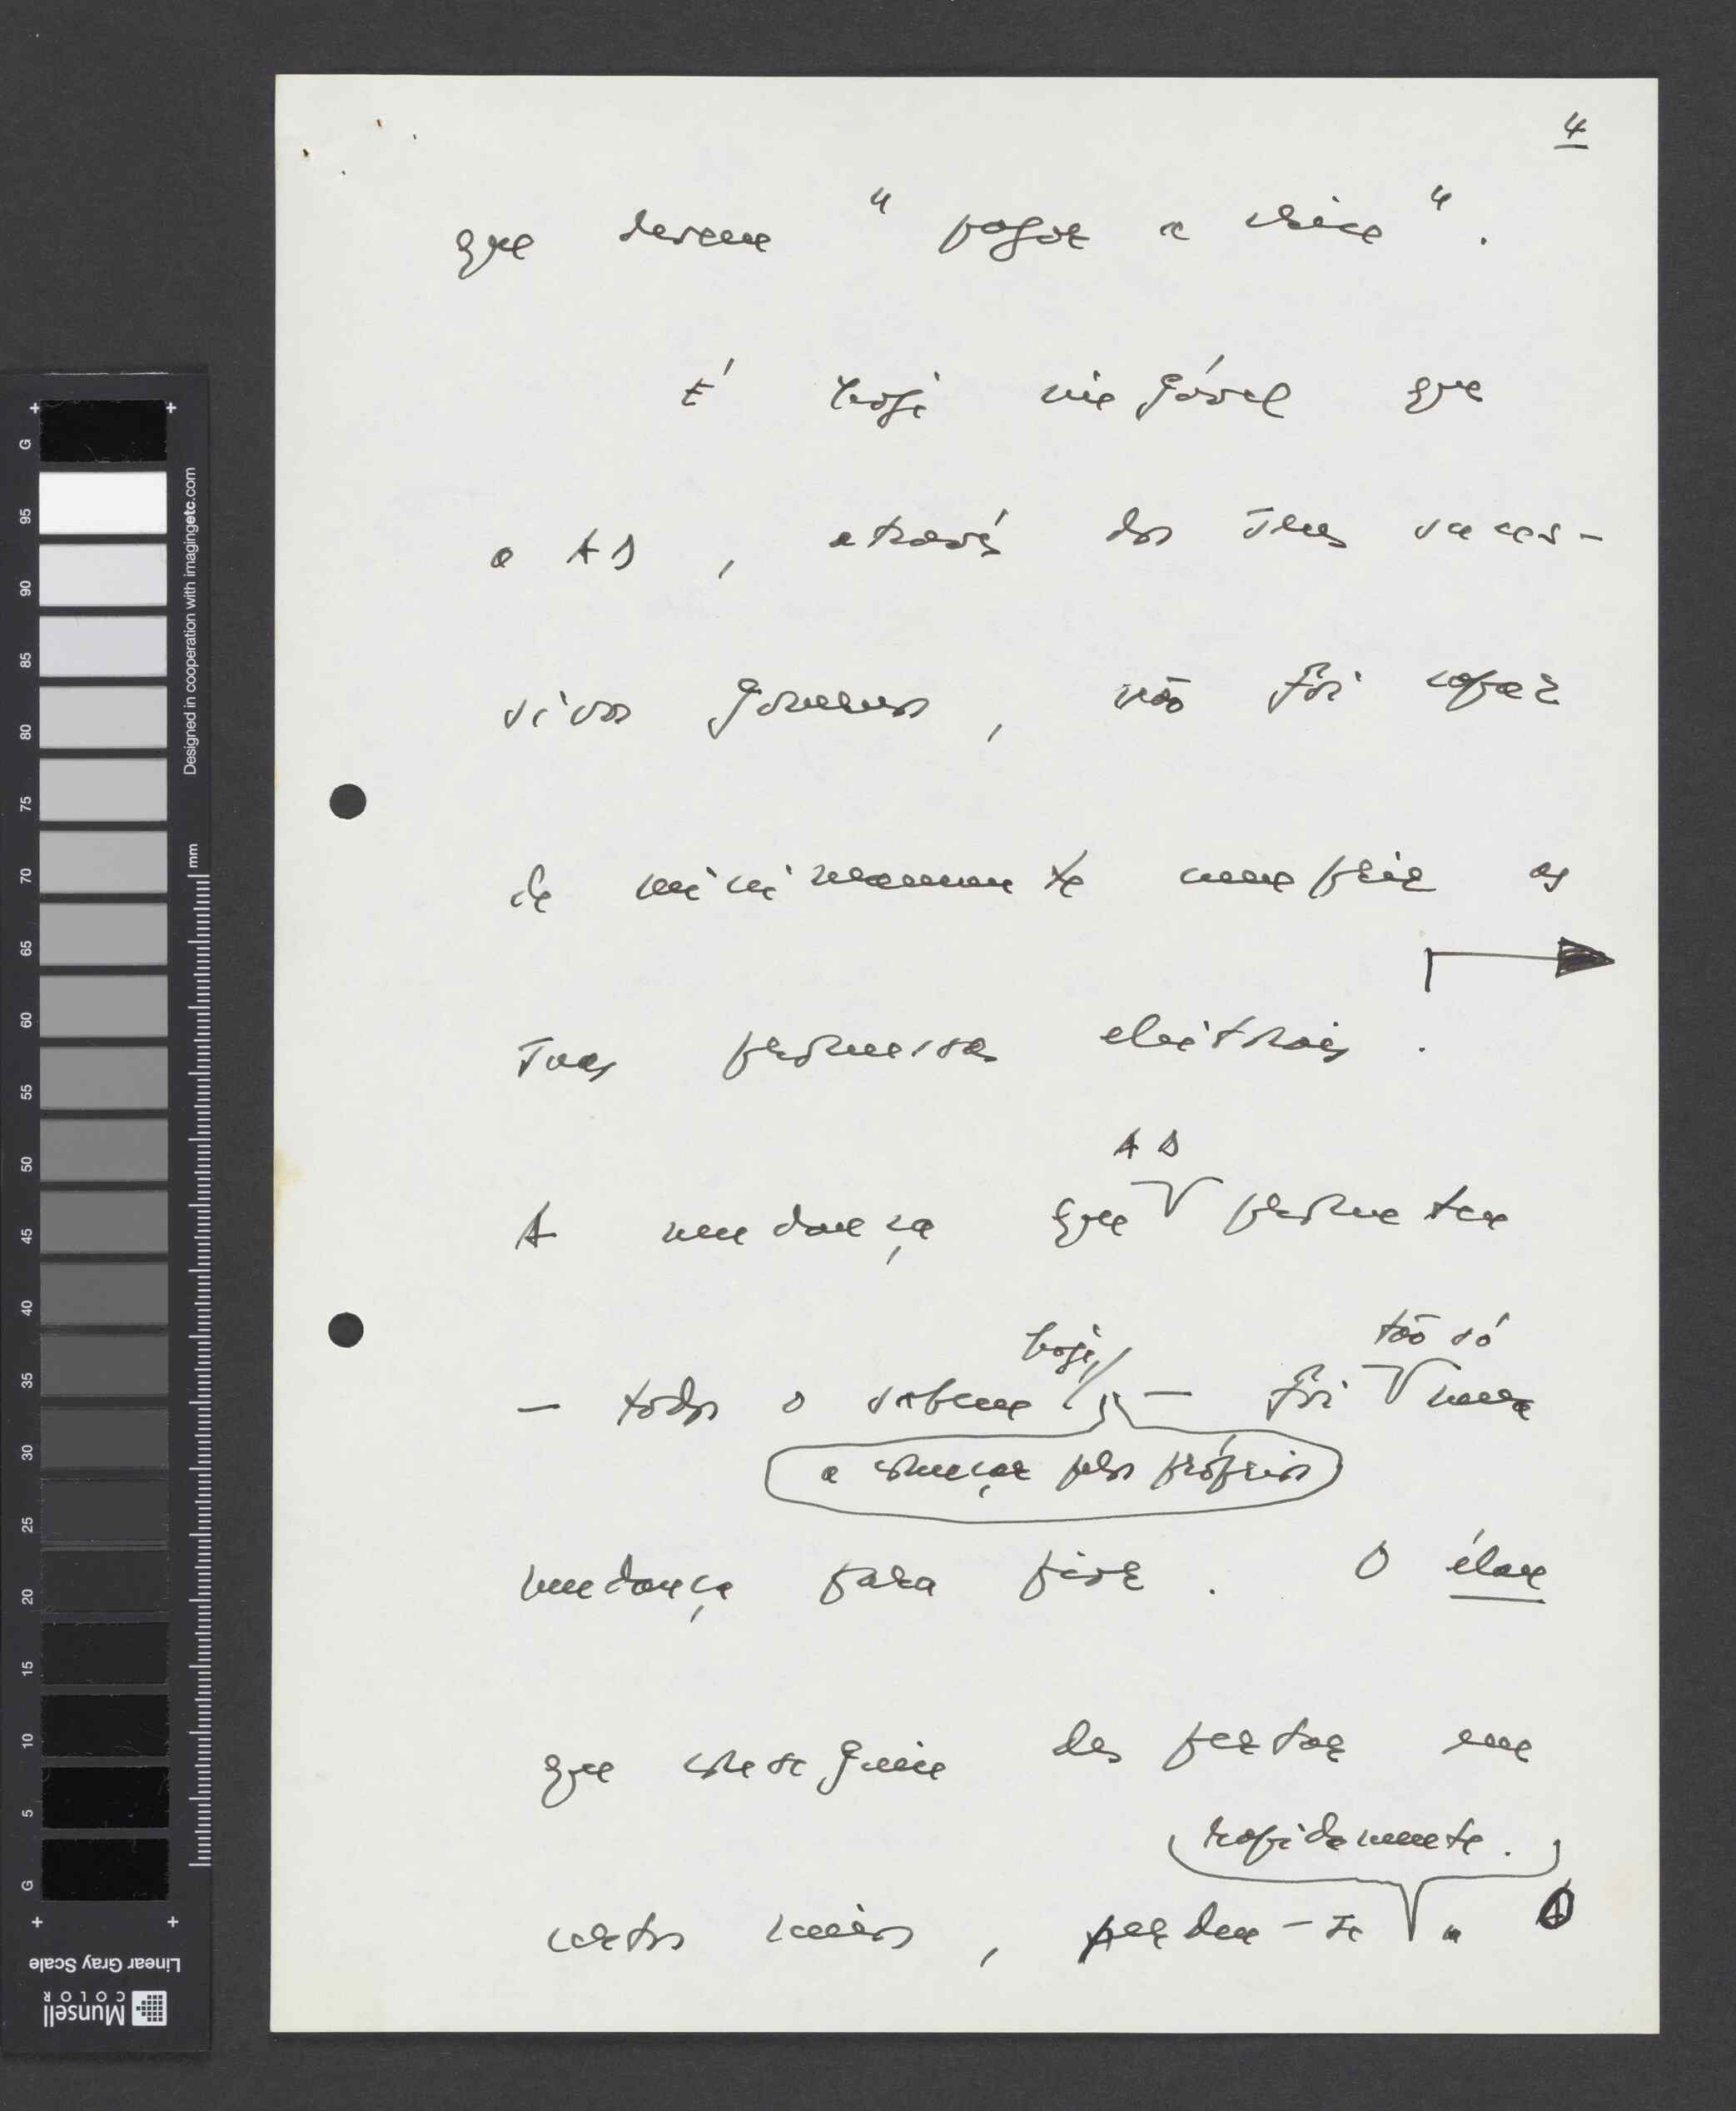 4
que devem "pagar a crise".
É hoje inegável que
a AD, através dos seus suces-
sivos governos, não foi capaz
de minimamente cumprir as
suas promessas eleitorais.
AD
A mudança que prometeu
hoje, tão só
— todos o sabem — foi uma
a começar pelos próprios
mudança para pior. O élan
que conseguiu despertar em
rapidamente.
certos meios, perdeu-se
mm
G 95 90 85 80 75 70 65 60 55 50 45 40 35 30 25 20 15 10 5 G
Designed in cooperation with imagingetc.com
Linear Gray Scale
Munsell
COLOR